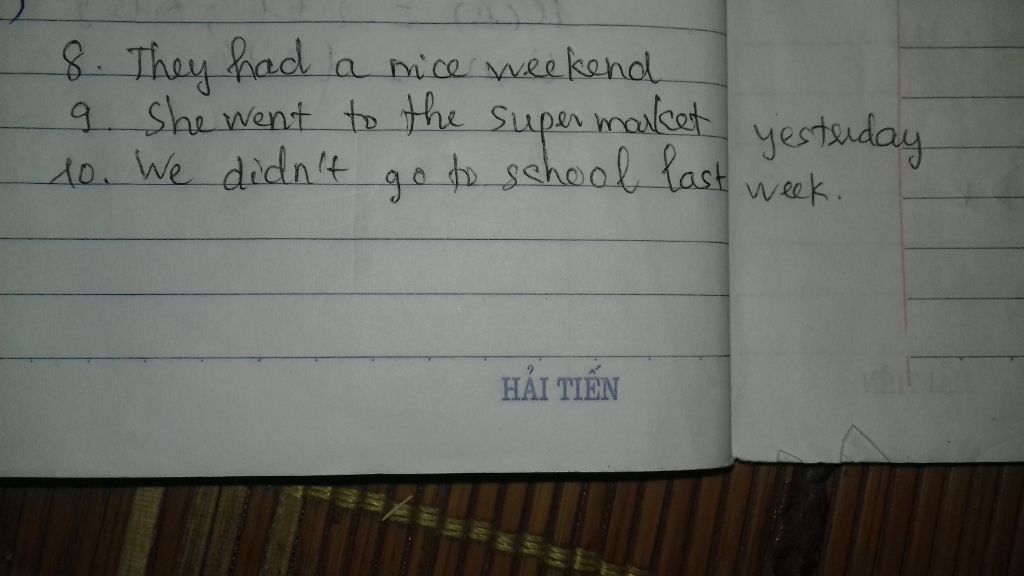 8. They had a nice weekend
9. She went to the supermarket yesterday
10. We didn't go to school last week.
HẢI TIẾN